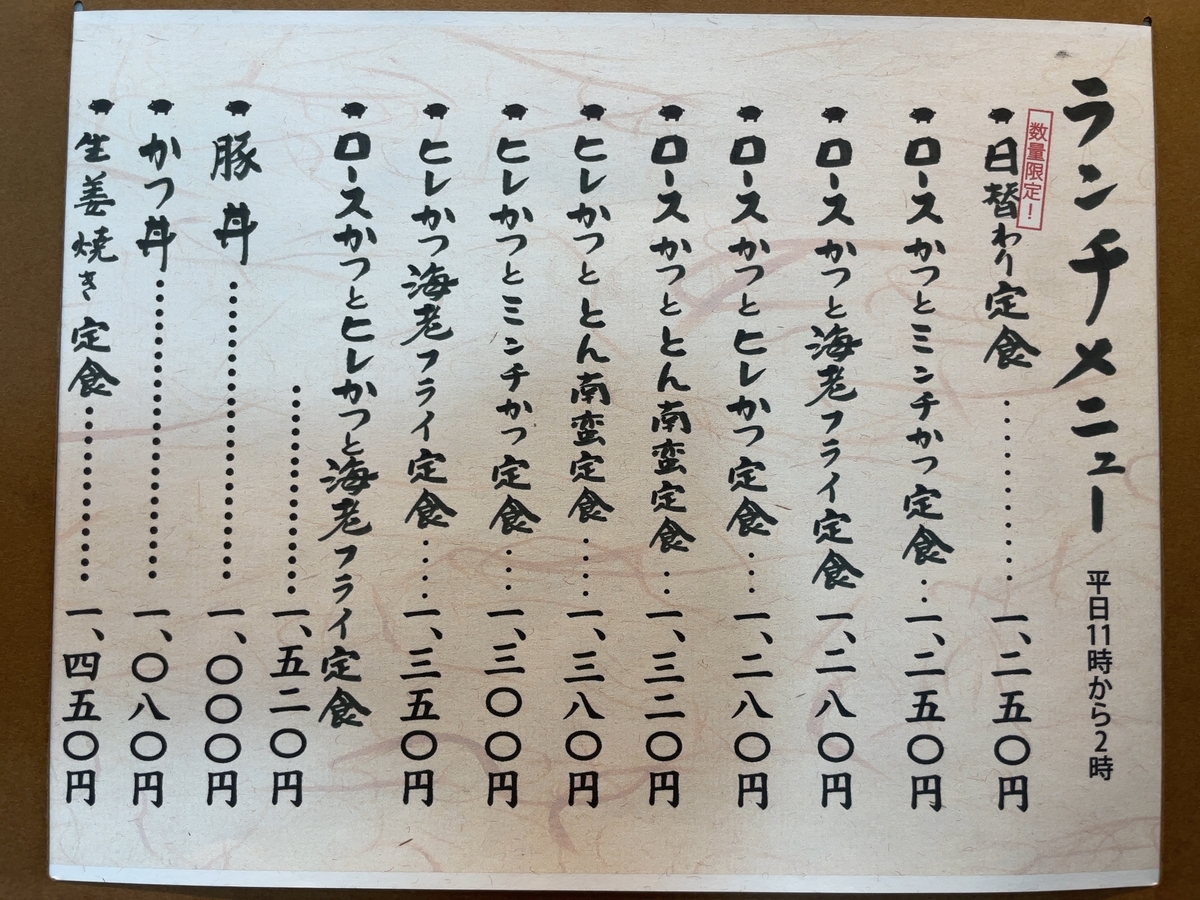 ランチメニュー 平日11時から2時
数量限定!
日替わり定食…………一、二五〇円
ロースかつとミンチかつ定食…一、二五〇円
ロースかつと海老フライ定食 一、二八〇円
ロースかつとヒレかつ定食……一、二八〇円
ロースかつととん南蛮定食…一、三二〇円
ヒレかつととん南蛮定食……一、三八〇円
ヒレかつとミンチかつ定食……一、三〇〇円
ヒレかつ海老フライ定食……一、三五〇円
ロースかつとヒレかつと海老フライ定食
…………一、五二〇円
豚丼…………一、〇〇〇円
かつ丼…………一、〇八〇円
生姜焼き定食…………一、四五〇円